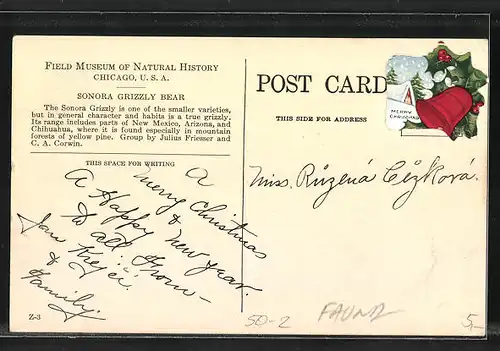 FIELD MUSEUM OF NATURAL HISTORY
CHICAGO, U. S. A.
SONORA GRIZZLY BEAR
The Sonora Grizzly is one of the smaller varieties,
but in general character and habits is a true grizzly.
Its range includes parts of New Mexico, Arizona, and
Chihuahua, where it is found especially in mountain
forests of yellow pine. Group by Julius Friesser and
C. A. Corwin.
THIS SPACE FOR WRITING
A
Merry Christmas
&
A Happy New Year.
To all From
Jan
&
Family.
Z-3
POST CARD
THIS SIDE FOR ADDRESS
MERRY
CHRISTMAS
Miss. Růžená Čížková.
50-2
FAUNA
5,-